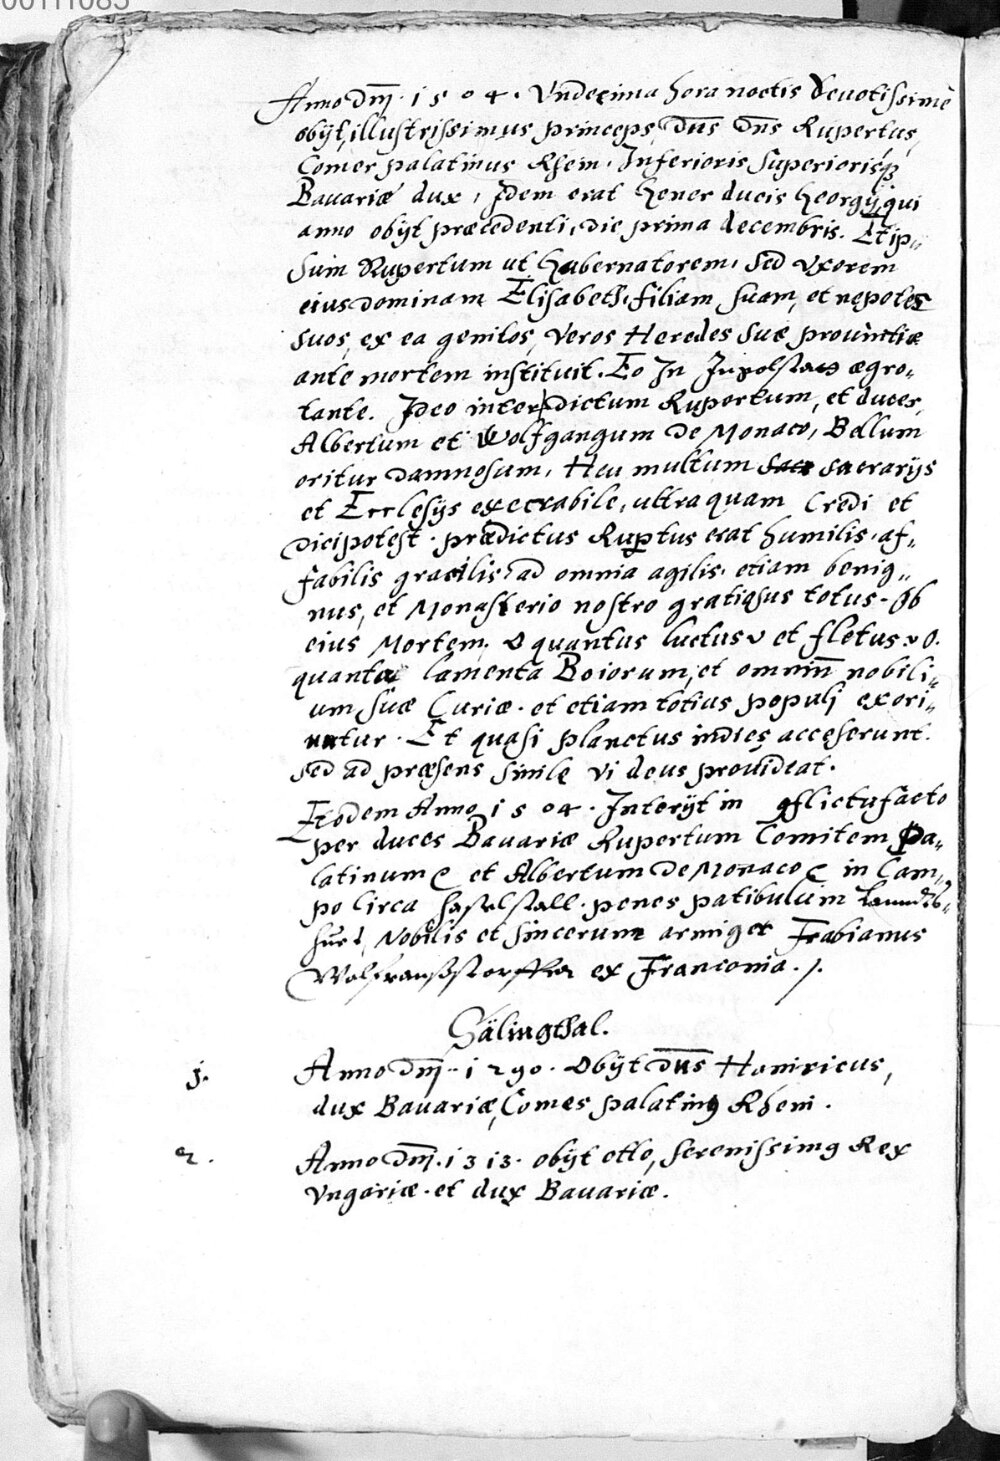 00111085
Anno Dnj. 1504. Vndecima hora noctis deuotissimè
obijt, illustrissimus princeps, Dns Dns Rupertus,
Comes palatinus Rheni. Inferioris Superiorisq3
Bauariæ dux, Idem erat Gener ducis Georgij, qui
anno obijt præcedenti, die prima decembris. Et ip„
sum Rupertum ut Gubernatorem, sed vxorem
eius dominam Elisabeth, filiam suam, et nepotes
suos, ex ea genitos, veros Heredes suæ prouintiæ
ante mortem instituit. Eo In Ingolstatt ægro„
tante. Ideo inter dictum Rupertum, et duces,
Albertum et Wolfgangum de Monaco, Bellum
oritur damnosum, Heu multum sacrarijs
et Ecclesijs execrabile, ultra quam Credi et
dici potest. prædictus Ruptus erat humilis, af„
fabilis gracilis, ad omnia agilis, etiam benig„
nus, et Monasterio nostro gratiosus totus. Ob
eius Mortem, O quantus luctus et fletus, O.
quanta lamenta Boiorum, et omnium nobili„
um suæ Curiæ. et etiam totius populj exori„
untur. Et quasi planctus indies accesserunt.
sed ad præsens simile Vi deus prouideat.
Eodem Anno 1504. Interijt in 9flictu facto
per duces Bauariæ Rupertum Comitem Pa„
latinum et Albertum de Monaco in Cam„
po Circa haselstall. penes patibulum Lanndts„
huet, Nobilis et sincerum armiger Frabianus
Wolfranßstorffer ex Franconia. /.
Sälingthal.
j. Anno Dnj. 1290. Obijt Dns Hanricus,
dux Bauariæ, Comes palatin9 Rheni.
2. Anno Dnj. 1313. obijt otto, serenissim9 Rex
Vngariæ. et dux Bauariæ.